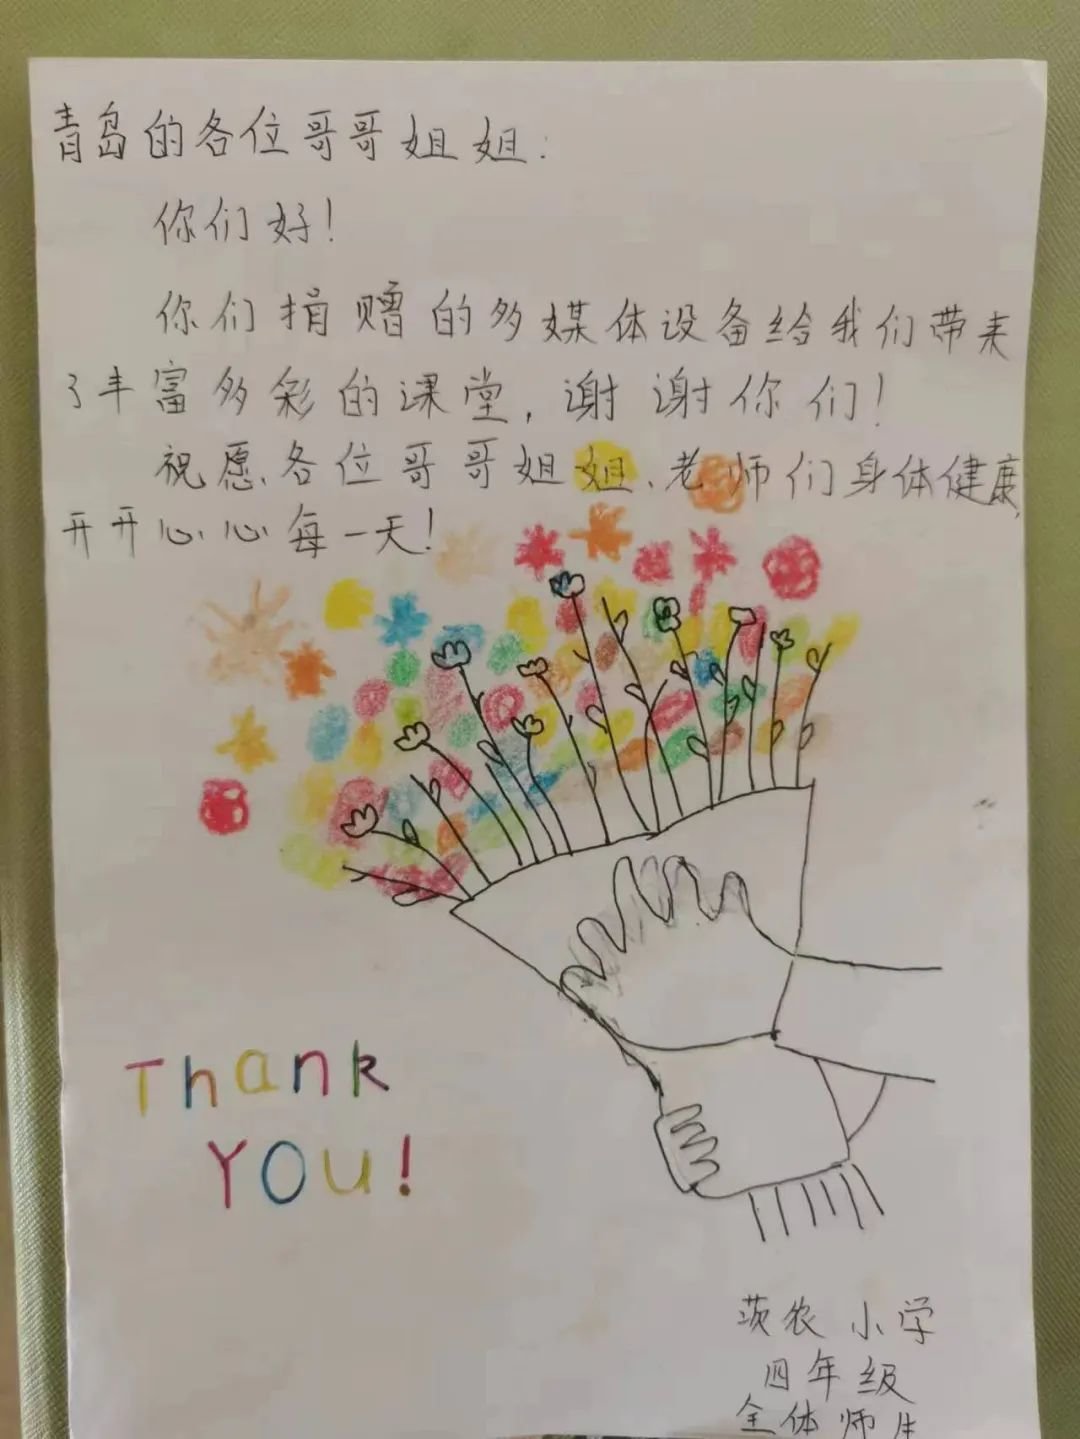 青岛的各位哥哥姐姐:
你们好!
你们捐赠的多媒体设备给我们带来
了丰富多彩的课堂,谢谢你们!
祝愿各位哥哥姐姐、老师们身体健康,
开开心心每一天!
Thank
YOU!
茨农小学
四年级
全体师生